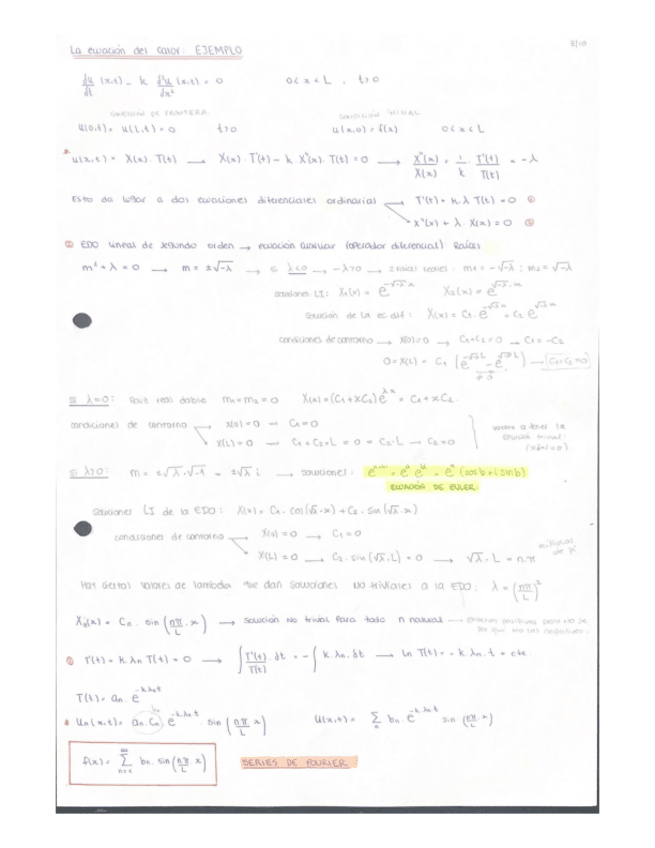 3/10
La ecuación del calor: EJEMPLO
du/dt (x,t) - k d²u/dx² (x,t) = 0    0 < x < L , t > 0
CONDICIÓN DE FRONTERA    CONDICIÓN INICIAL
u(0,t) = u(L,t) = 0    t > 0    u(x,0) = f(x)    0 < x < L
* u(x,t) = X(x) · T(t) → X(x) · T'(t) - k · X''(x) · T(t) = 0 → X''(x)/X(x) = 1/k · T'(t)/T(t) = -λ
Esto da lugar a dos ecuaciones diferenciales ordinarias → T'(t) + k·λ T(t) = 0 ①
X''(x) + λ · X(x) = 0 ②
② EDO lineal de segundo orden → ecuación auxiliar (operador diferencial) Raíces
m² + λ = 0 → m = ±√-λ → si λ<0 → -λ>0 → 2 raíces reales: m₁ = -√-λ ; m₂ = √-λ
soluciones LI: X₁(x) = e^(-√-λ·x)    X₂(x) = e^(√-λ·x)
Solución de la ec. dif: X(x) = C₁ · e^(-√-λ x) + C₂ e^(√-λ x)
condiciones de contorno → X(0) = 0 → C₁+C₂ = 0 → C₁ = -C₂
0 = X(L) = C₁ (e^(-√-λ L) - e^(√-λ L)) → C₁=C₂=0
≠ 0
si λ=0: raíz real doble m₁=m₂=0    X(x) = (C₁+xC₂)e^(λx) = C₁+xC₂.
condiciones de contorno → X(0) = 0 → C₁=0
X(L) = 0 → C₁+C₂·L = 0 = C₂·L → C₂=0
solución trivial:
(X(x)=0)
si λ>0: m = ±√λ·√-1 = ±√λ i → soluciones: e^(a+bi) = e^a e^(bi) = e^a (cos b + i sin b)
ECUACIÓN DE EULER
soluciones LI de la EDO: X(x) = C₁ · cos(√λ·x) + C₂ · sin(√λ·x)
condiciones de contorno → X(0) = 0 → C₁=0
X(L) = 0 → C₂ · sin(√λ·L) = 0 → √λ · L = n·π
múltiplos de π
Hay ciertos valores de lambda que dan soluciones no triviales a la EDO: λ = (nπ/L)²
Xₙ(x) = Cₙ · sin(nπ/L · x) → solución no trivial para todo n natural → enteros positivos pero no se
por qué no los negativos.
① T'(t) + k·λₙ T(t) = 0 → ∫ T'(t)/T(t) · dt = -∫ k·λₙ·dt → ln T(t) = -k·λₙ·t + cte.
T(t) = aₙ · e^(-k·λₙt)
bₙ
* uₙ(x,t) = aₙ·Cₙ e^(-k·λₙ·t) · sin(nπ/L x)    u(x,t) = Σₙ bₙ · e^(-k·λₙ·t) sin(nπ/L · x)
f(x) = Σ_(n=1)^∞ bₙ · sin(nπ/L x)    SERIES DE FOURIER